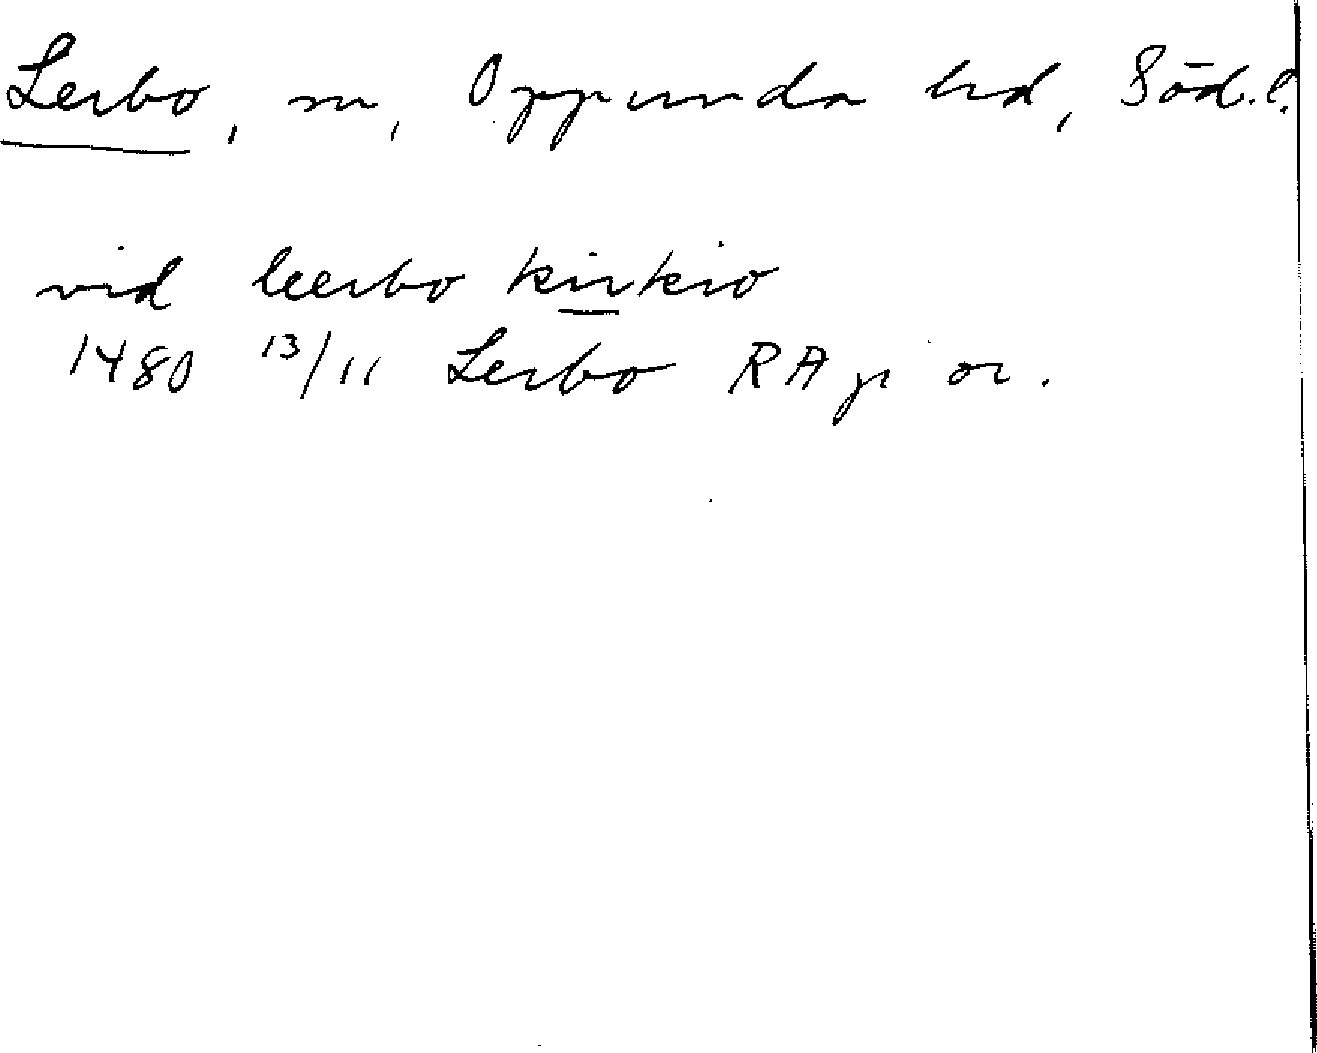 Lerbo, sn, Oppunda hd, Söd.l.
vid leerbo kirkio
1480 13/11 Lerbo RAp or.